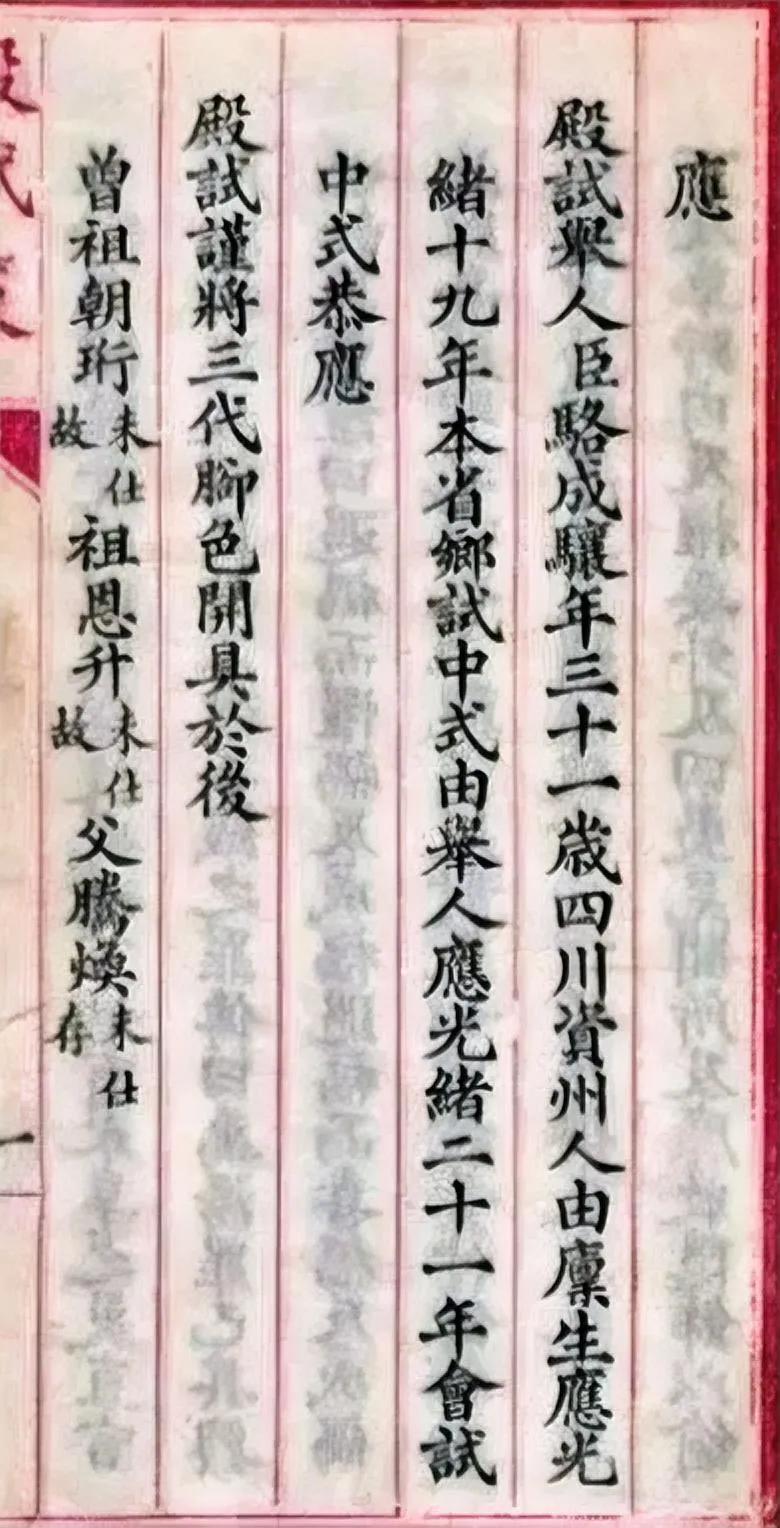 應
殿試舉人臣駱成驤年三十一歲四川資州人由廩生應光
緒十九年本省鄉試中式由舉人應光緒二十一年會試
中式恭應
殿試謹將三代腳色開具於後
曾祖朝珩未仕故 祖恩升未仕故 父騰煥未仕存
殿試策
一